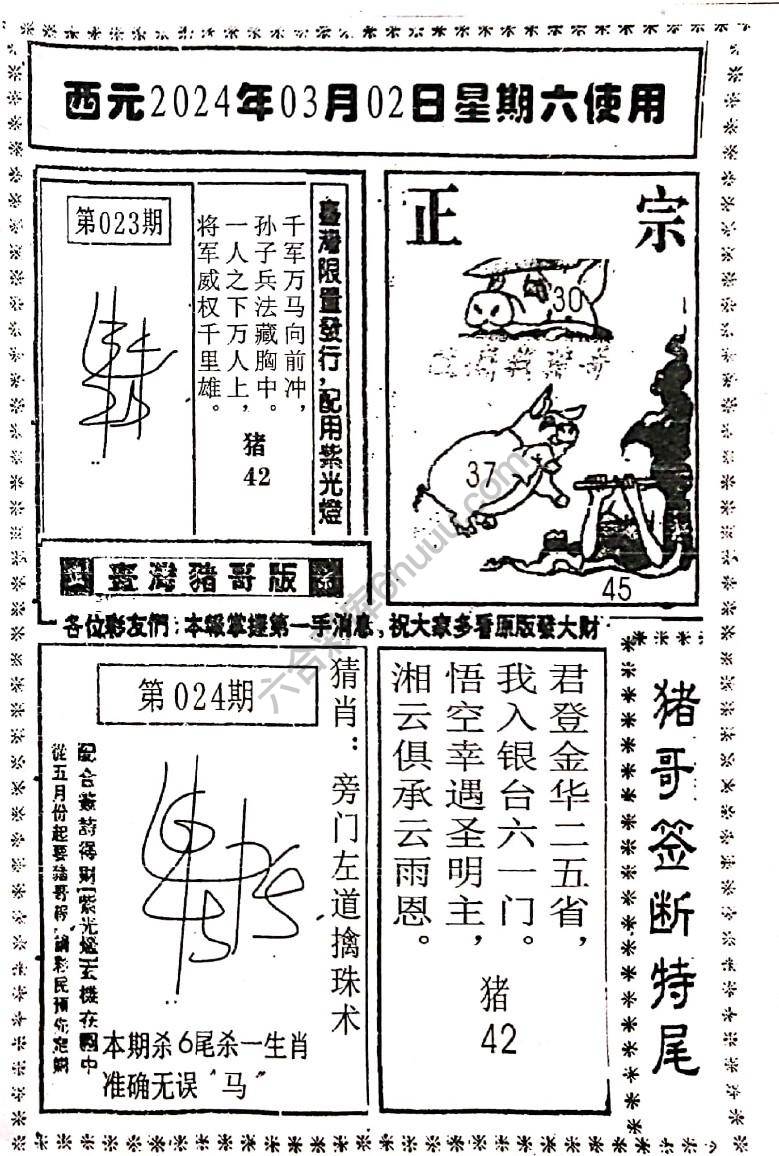 西元2024年03月02日星期六使用
第023期
千军万马向前冲，
孙子兵法藏胸中。
一人之下万人上，
将军威权千里雄。
猪
42
臺灣限量發行，配用紫光燈
臺灣豬哥版
正宗
30
37
45
各位彩友們：本報掌握第一手消息，祝大家多看原版發大財
第024期
猜肖：旁门左道擒珠术
本期杀6尾杀一生肖
准确无误"马"
君登金华二五省，
我入银台六一门。
悟空幸遇圣明主，
湘云俱承云雨恩。
猪
42
猪哥签断特尾